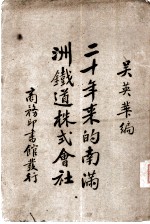 吳英華編
二十年來的南滿
洲鐵道株式會社
商務印書館發行